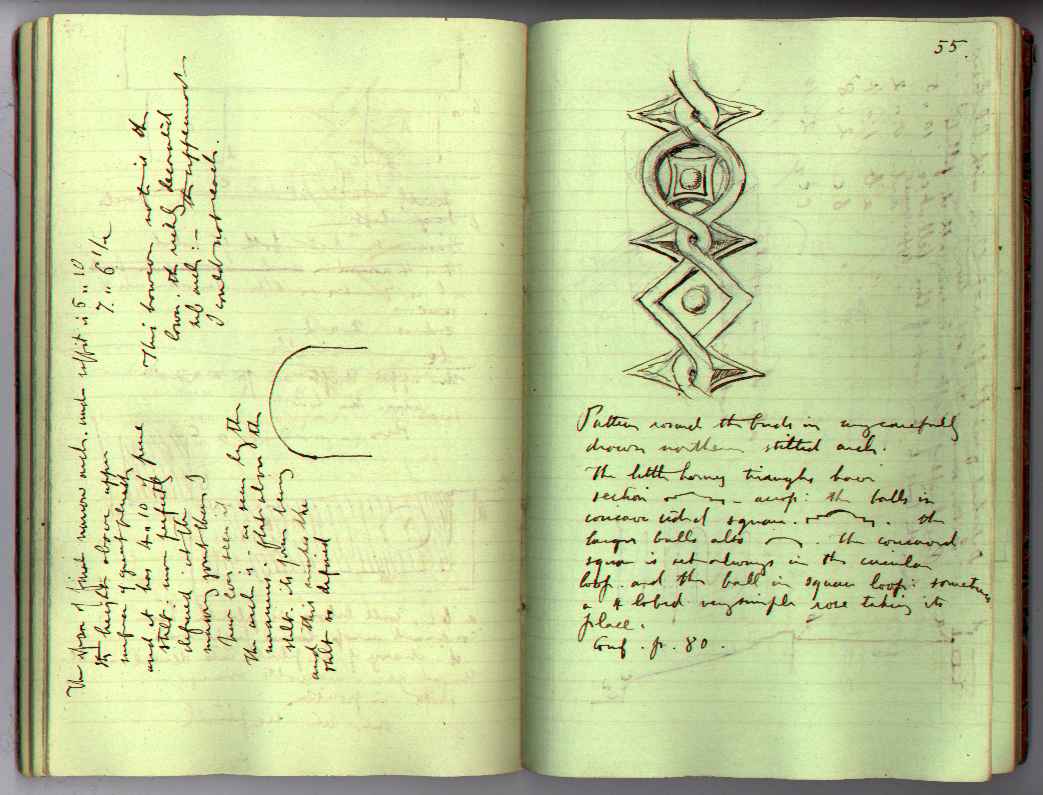 The span of first narrow arch, under soffit is 5 " 10
its height above upper 7. " 6 1/2
surface of great plinth
and it has 4 " 10 of pure
stilt: more perfectly
defined at the
masonry joint than I
have ever seen it
The arch is - as seen by the
measures - flat above the
stilt. its form being
and this makes the
stilt so defined
This however not is the
lower. the richly decorated
sub arch: - the uppermost
I could not reach.
55.
Pattern round the birds in very carefully
drawn northern stilted arch.
The little horny triangles have
section - across: the balls in
concave sided square. . the
larger balls also . the concaved
square is set always in the circular
loop. and the ball in square loop: sometimes
a 4 lobed very simple rose taking its
place.
Conf. p. 80.